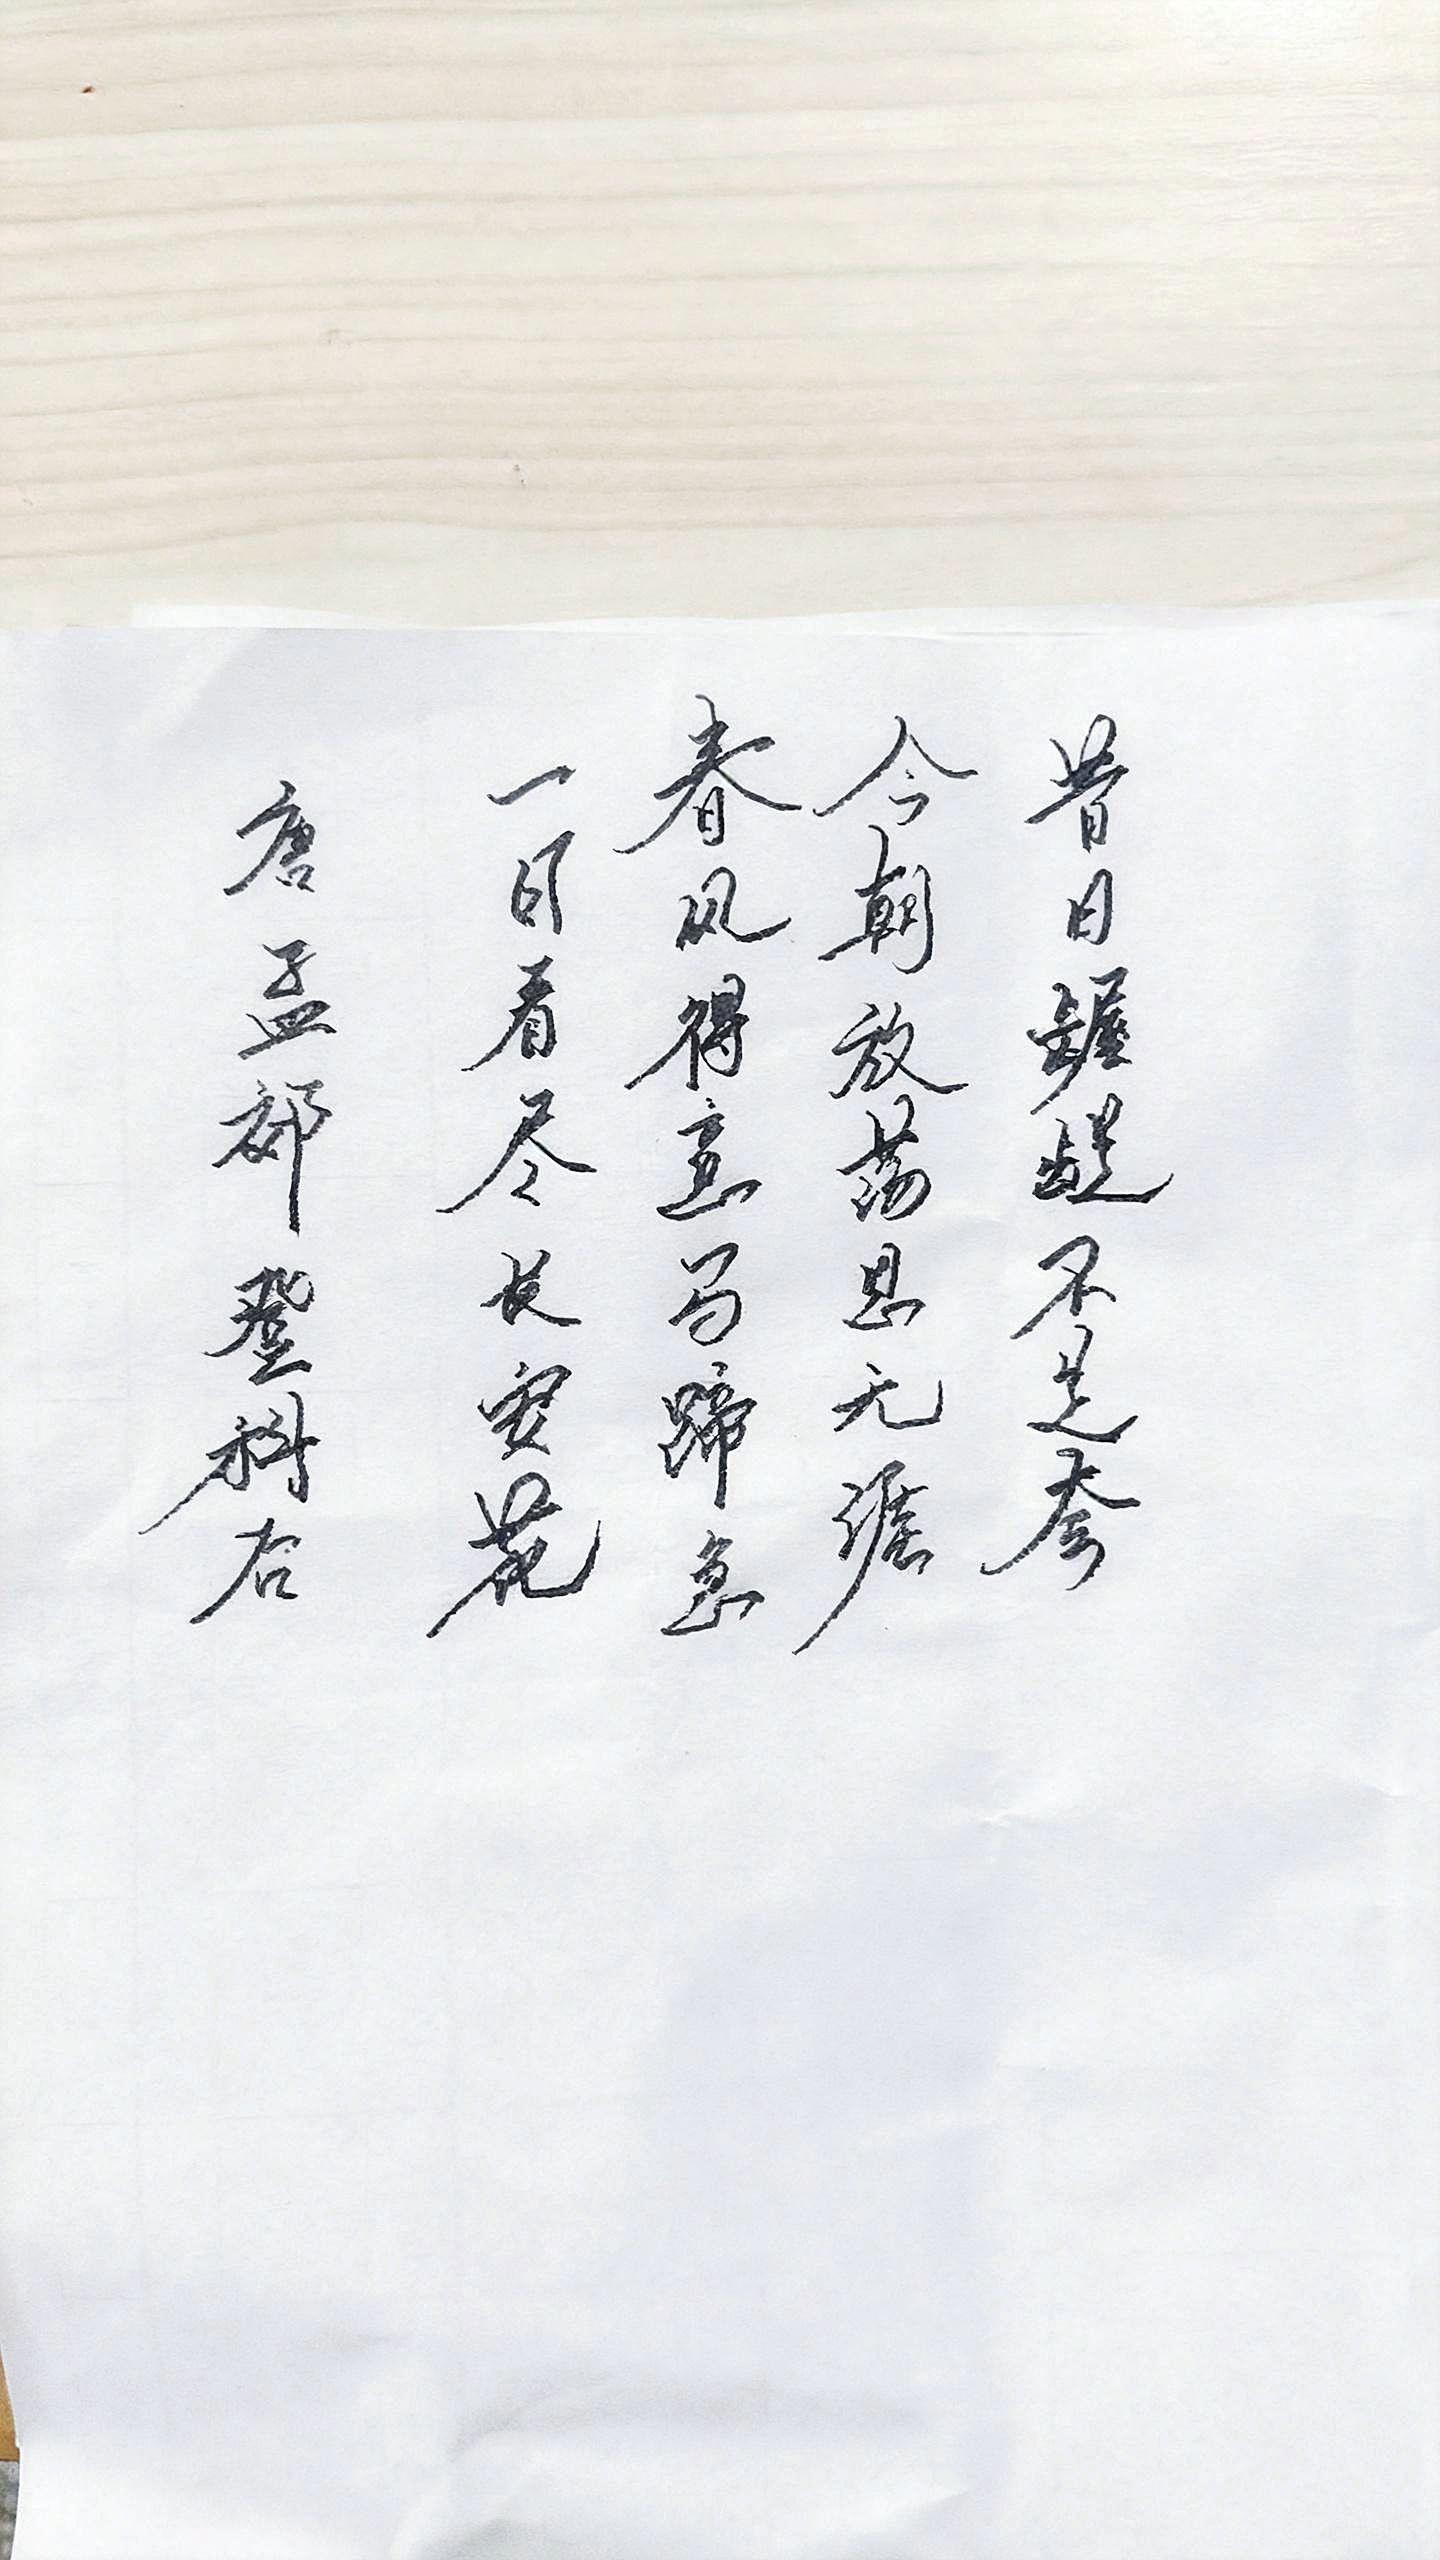 昔日龌龊不足夸
今朝放荡思无涯
春风得意马蹄急
一日看尽长安花
唐孟郊登科后